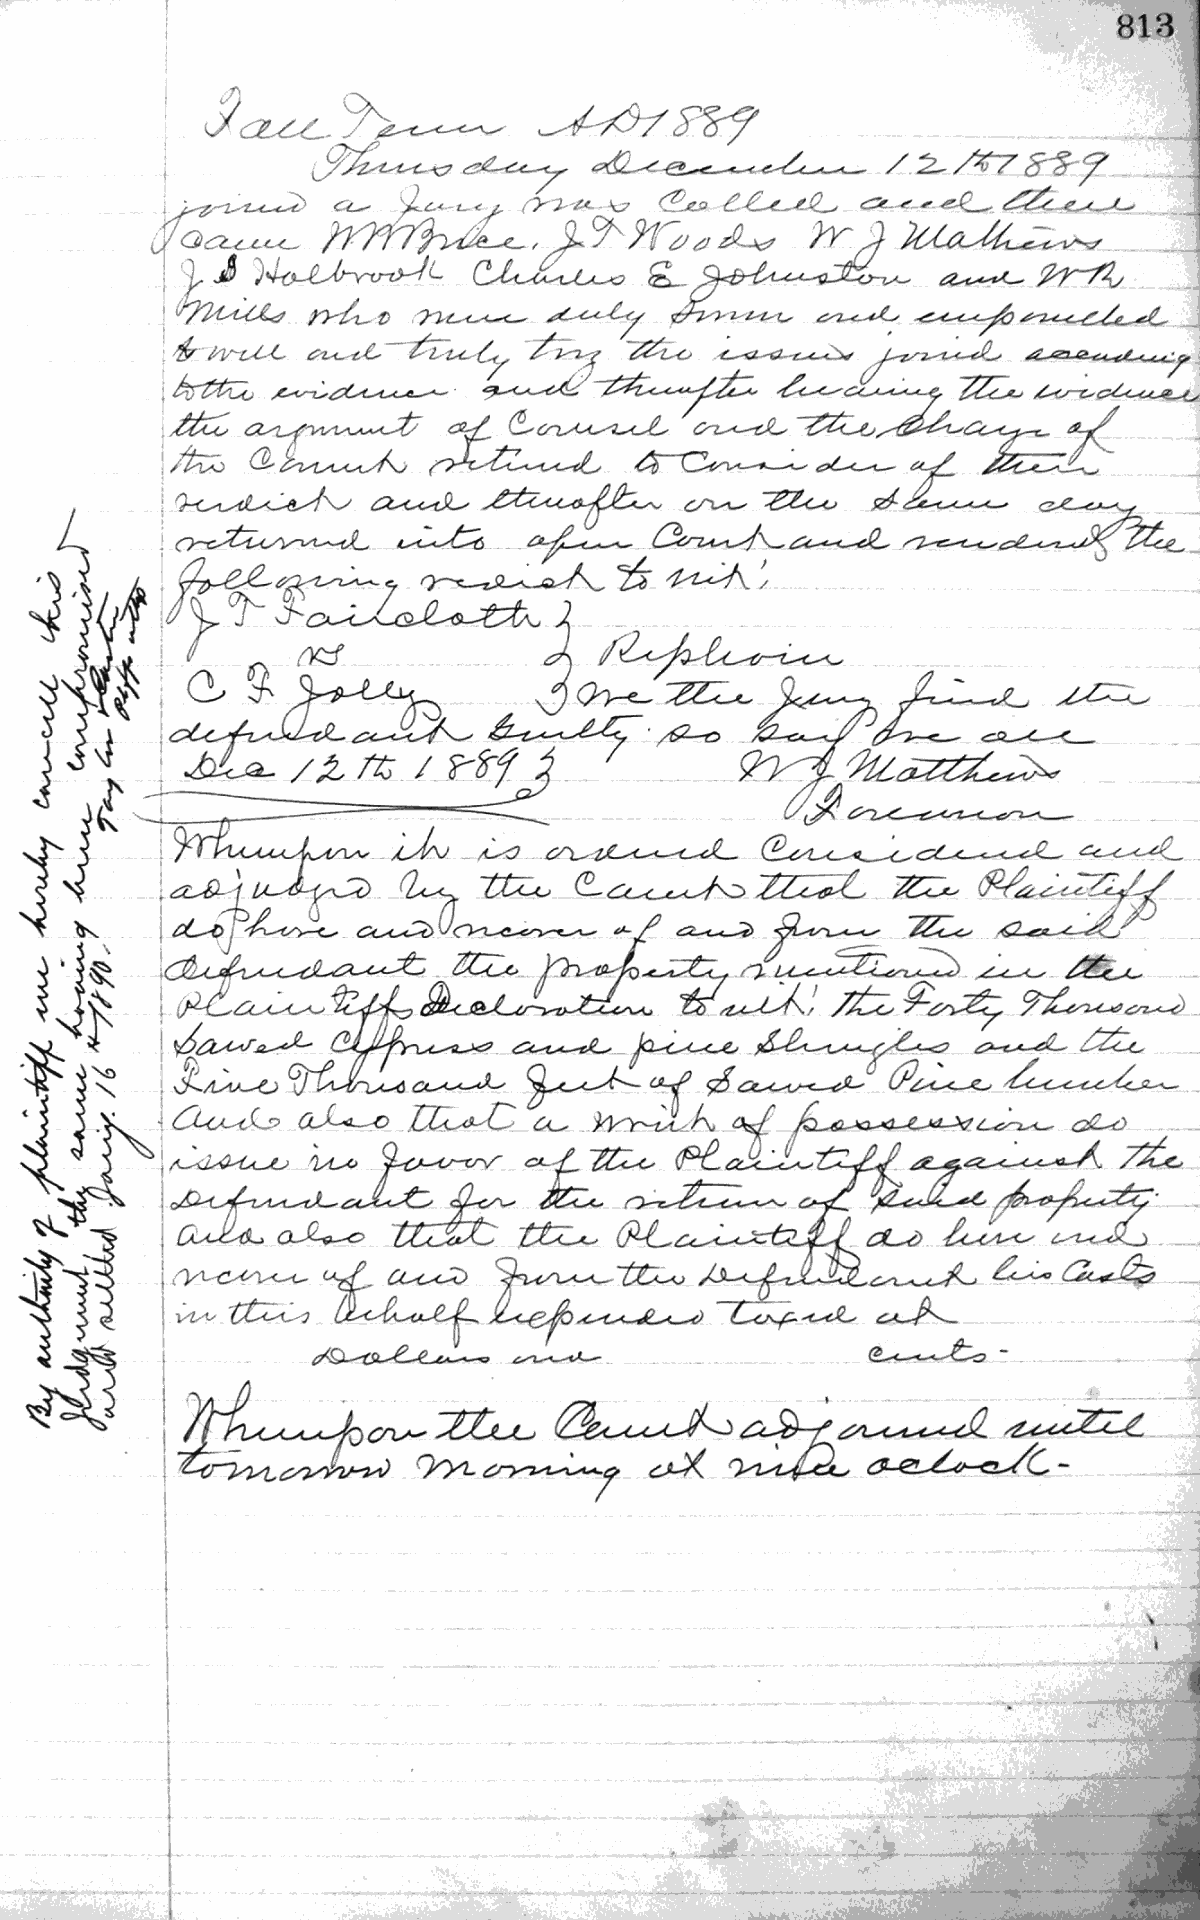 813
Fall Term AD 1889
Thursday December 12th 1889
joined a Jury was Called and there
came W W Bruce, J T Woods W J Mathews
J S Holbrook Charles E Johnston and W R
Mills who were duly sworn and empanelled
to well and truly try the issues joined according
to the evidence and thereafter hearing the evidence
the argument of Counsel and the Charge of
the Court retired to Consider of their
verdict and thereafter on the same day
returned into open Court and rendered the
following verdict to wit:
J T Faircloth }
vs } Replevin
C F Jolly } we the Jury find the
defendant Guilty so say we all
Dec 12th 1889 } W J Matthews
Foreman
Whereupon it is ordered Considered and
adjudged by the Court that the Plaintiff
do have and recover of and from the said
defendant the property mentioned in the
Plaintiffs Declaration to wit: the Forty Thousand
Sawed Cypress and pine Shingles and the
Five Thousand feet of Sawed Pine lumber
And also that a writ of possession do
issue in favor of the Plaintiff against the
Defendant for the return of said property
And also that the Plaintiff do have and
recover of and from the Defendant his Costs
in this behalf expended taxed at
Dollars and cents-
Whereupon the Court adjourned until
tomorrow morning at nine oclock-
By authority of plaintiff we hereby cancell this
Judgment the same having been compromised
and settled Jany. 16th 1890.
Plffs attys